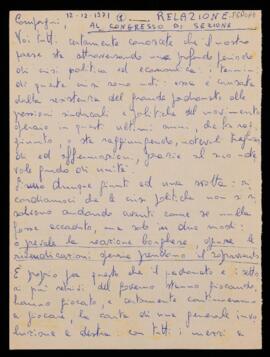 12-12-1971 (1) RELAZIONE
Compagni, AL CONGRESSO DI SEZIONE
Voi tutti certamente conoscete che il nostro
paese sta attraversando un profondo periodo
di crisi politica ed economica: i termini
di questa crisi sono noti: essa è causata
dalla resistenza del grande padronato alle
pressioni sindacali e politiche del movimento
operaio in questi ultimi anni, che ha rag
giunto, e sta raggiungendo, notevoli
ed affermazioni, grazie al suo note
vole grado di unità.
Siamo dunque giunti ad una svolta: ri
cordiamoci che le crisi politiche non si ri
solvono andando avanti come se nulla
fosse accaduto, ma solo in due modi:
o prevale la reazione borghese, oppure le
rivendicazioni operaie prendono il sopravvento.
È proprio per questo che il padronato e i setto
ri più retrivi del governo stanno giocando,
hanno giocato, e certamente continueranno
a giocare, la carta di una generale invo
luzione a destra con tutti i mezzi a